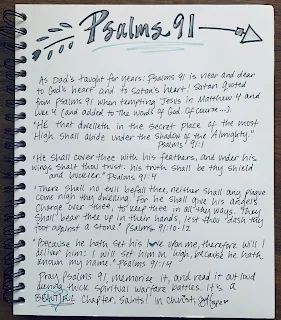 Psalms 91
As Dad's taught for years: Psalms 91 is near and dear
to God's heart and to Satan's heart! Satan quoted
from Psalms 91 when tempting Jesus in Matthew 4 and
Luke 4 (and added to The Words of God. Of course...)
"HE that dwelleth in the secret place of the most
High shall abide under the shadow of the Almighty."
Psalms 91:1
"He shall cover thee with his feathers, and under his
wings shalt thou trust: his truth shall be thy shield
and buckler." Psalms 91:4
"There shall no evil befall thee, neither shall any plague
come nigh thy dwelling. For he shall give his angels
charge over thee, to keep thee in all thy ways. They
shall bear thee up in their hands, lest thou dash thy
foot against a stone." Psalms 91:10-12
"Because he hath set his love upon me, therefore will I
deliver him: I will set him on high, because he hath
known my name." Psalms 91:14
Pray Psalms 91, memorize it, and read it out loud
during thick spiritual warfare battles. It's a
BEAUTIFUL Chapter, Saints! In Christ,